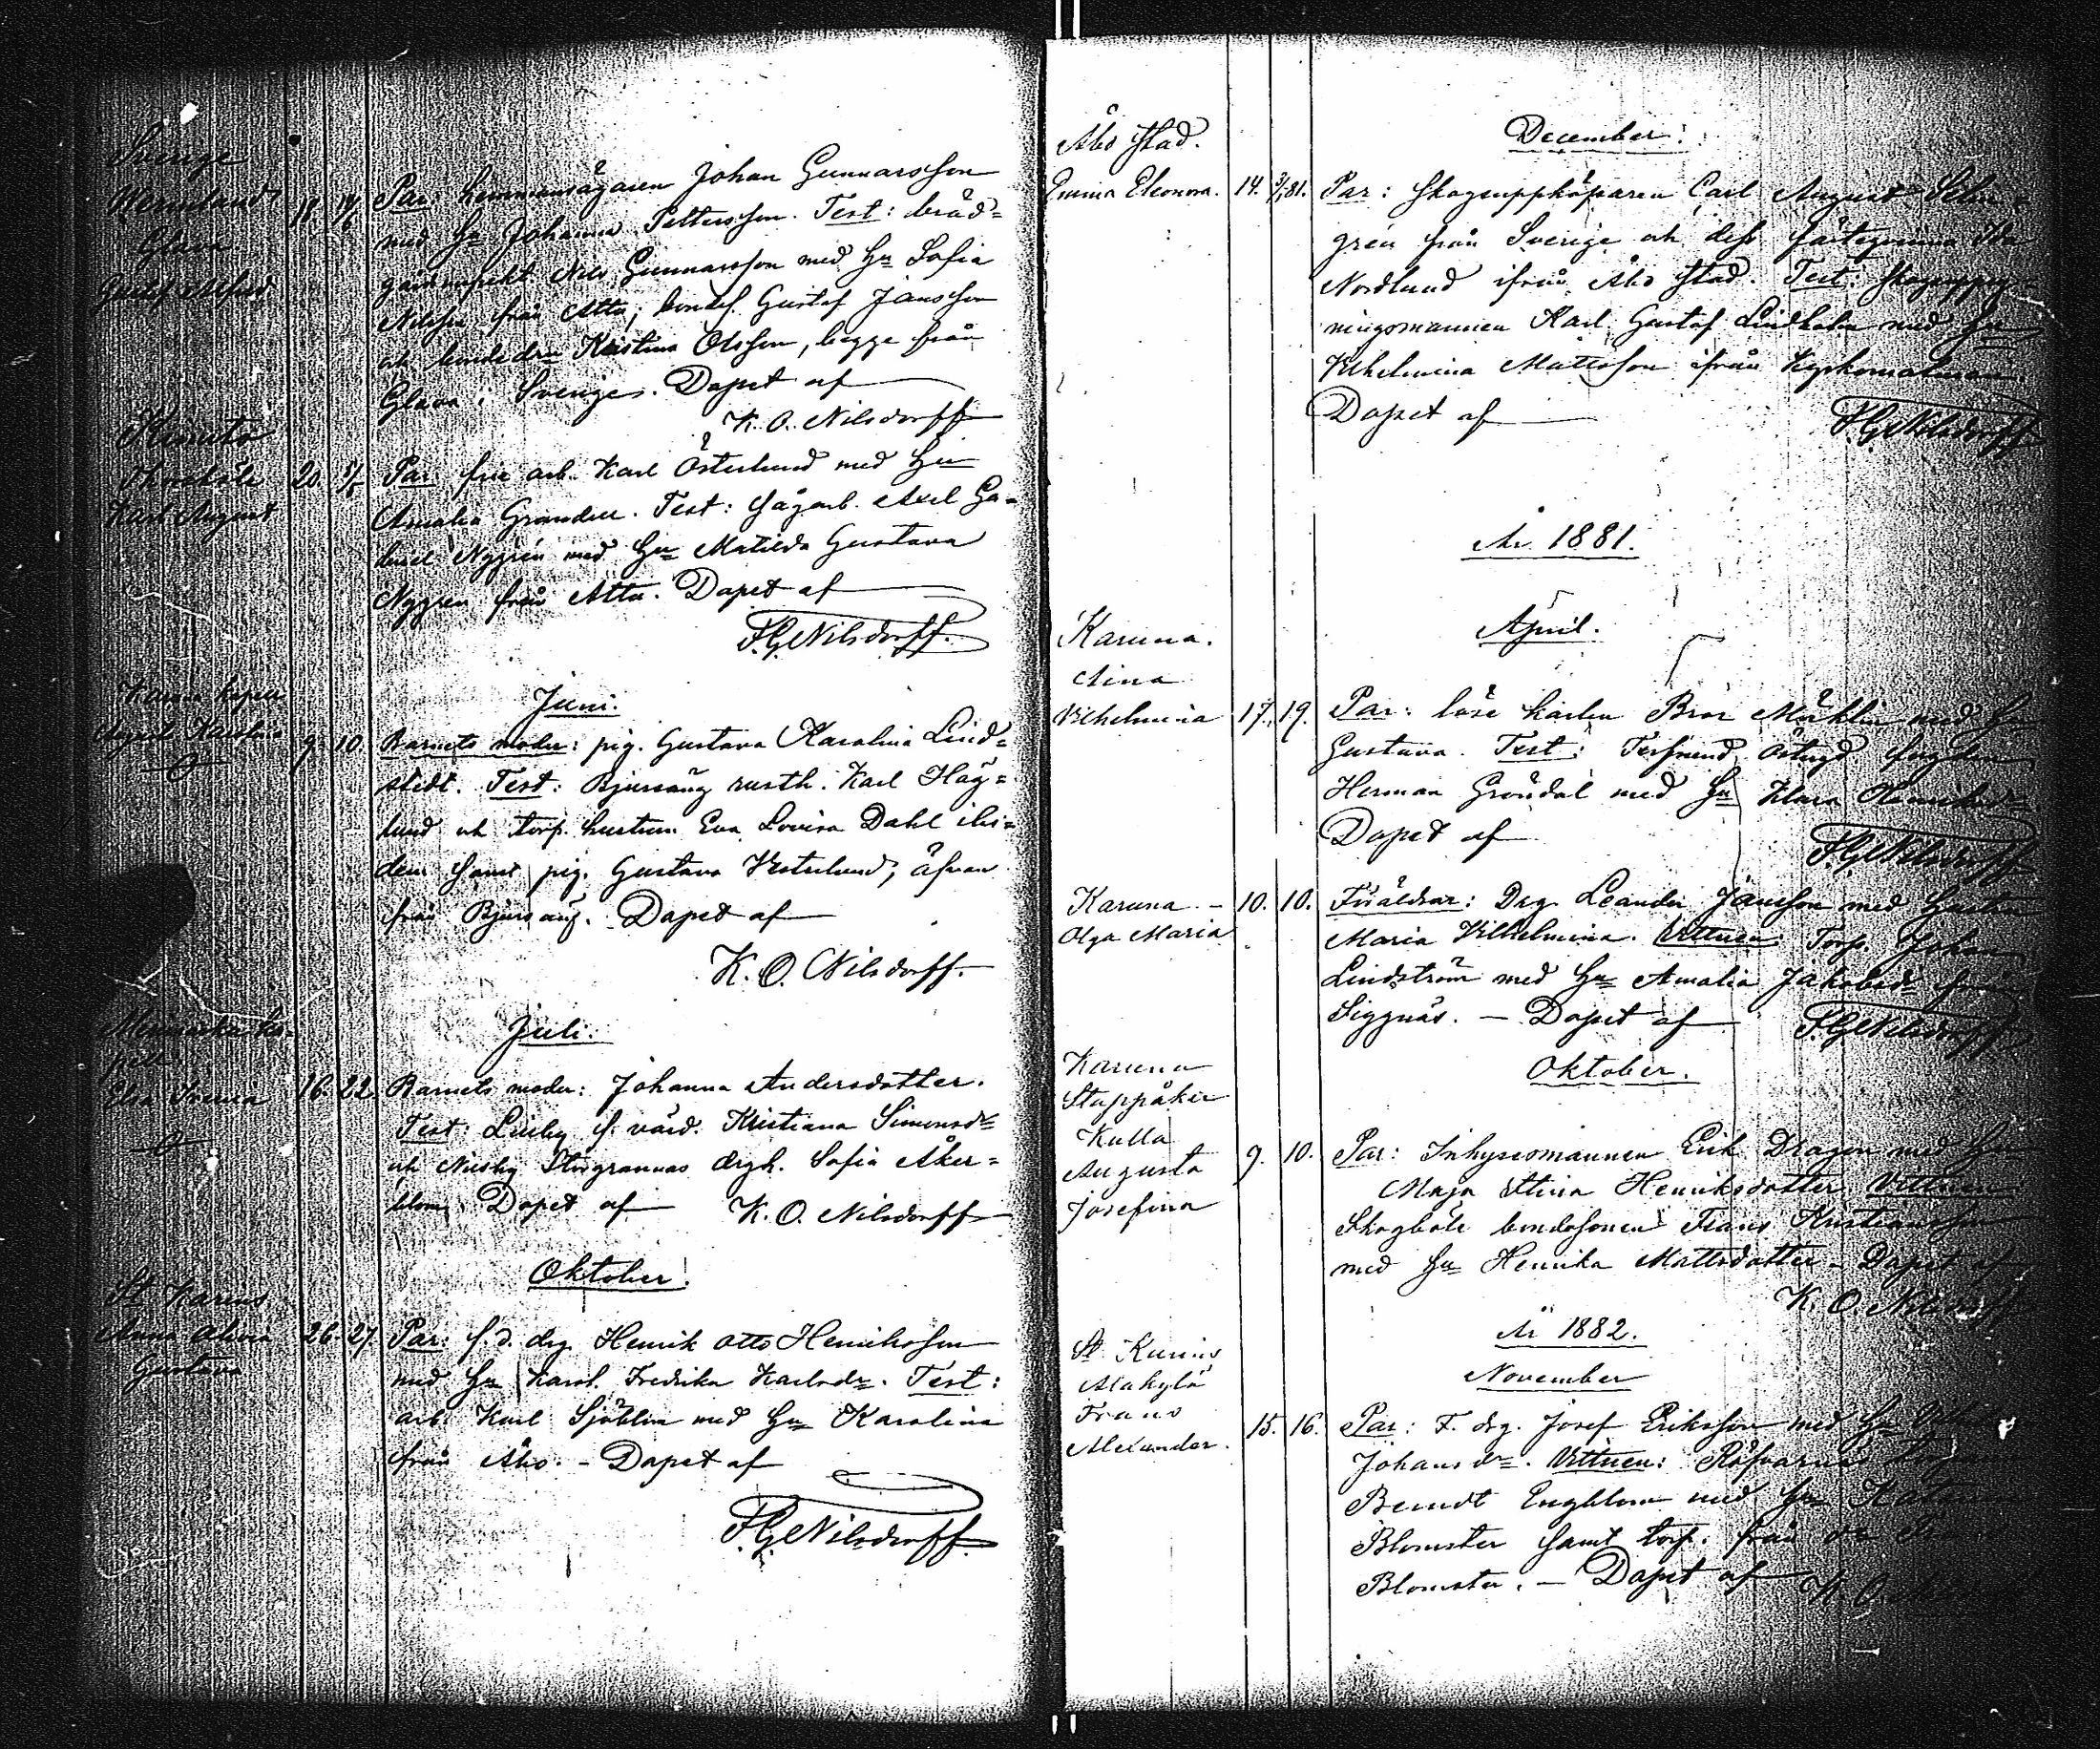 Sverige
Wermland
Glava
Gustaf Alfred
18. 19/5 Par: hemmansägaren Johan Gunnarsson
med Hu Johanna Pettersson. Test: bräd=
Nils Gunnarsson med Hu Sofia
Nilsson från Attu, bondes. Gustaf Jansson
och bondedrn Kristina Olsson, begge från
Glava i Sverige. Dapet af
K. O. Nilsdorff
Kimito
Karl August
20. Par: frie arb. Karl Österlund med Hu
Amalia Grandell. Test: Sågarb. Axel Ga=
briel Nygrén med Hu Matilda Gustava
Nygren från Attu. Dapet af
F. G. Nilsdorff.
Juni.
Karuna kapell
August Karolina
9. 10. Barnets moder: pig. Gustava Karolina Lind=
stedt. Test: Bjursäng rusth. Karl Häg=
lund och torp. hustrun Eva Lovisa Dahl ibi=
dem samt pig. Gustava Vesterlund, äfven
från Bjursäng. Dapet af
K. O. Nilsdorff.
Juli.
Merimasku ka-
pell
Elsa Irenia
16. 22. Barnets moder: Johanna Andersdotter.
Test: Lielby f. värd. Kristiana Simonsdr
och Nusby Storgrannas drgh. Sofia Åker=
blom. Dapet af K. O. Nilsdorff
Oktober.
St Karins
Anna Olivia
Gustava
26. 27. Par: f. d. drg. Henrik Otto Henriksson
med Hu Karol. Fredrika Karlsdr. Test:
arb. Karl Sjöblom med Hu Karolina
från Åbo. - Dapet af
F. G. Nilsdorff.
December.
Åbo Stad.
Emma Eleonora. 14. 2/1 81. Par: Skogsuppköparen Carl August Selin=
grén från Sverige och dess fästeqvinna Ida
Nordlund ifrån Åbo Stad. Test:
Karl Gustaf Lindholm med Hu
Vilhelmina Mattsson ifrån Kyrkomalmen.
Dapet af F. G. Nilsdorff
År 1881.
April.
Karuna.
Aina
Vilhelmina 17. 19. Par: löse karlen Bror Mählin med Hu
Gustava. Test:
Herman Gröndal med Hu Klara Henriksdr
Dapet af F. G. Nilsdorff
Karuna. - 10. 10. Föräldrar: Drg. Leander Jansson med Hustru
Olga Maria
Maria Vilhelmina. Vittnen: Torp. Johan
Lindström med Hu Amalia Jakobsdr från
Siggnäs. - Dapet af F. G. Nilsdorff
Oktober.
Karuna
Stappåker
Kulla
Augusta
Josefina
9. 10. Par: Inhysesmannen Erik Dragon med Hu
Maja Stina Henriksdotter. Vittnen:
Skogböle bondesonen Frans Kristiansson
med Hu Henrika Mattsdotter - Dapet af
K. O. Nilsdorff
År 1882.
November
St Karins
Alakylä
Frans
Alexander. 15. 16. Par: F. drg. Josef Eriksson med Hu
Johansdr. Vittnen: Röfvarnäs
Berndt Engblom med Hu
Blomster samt torp. från
Blomster. - Dapet af K. O.